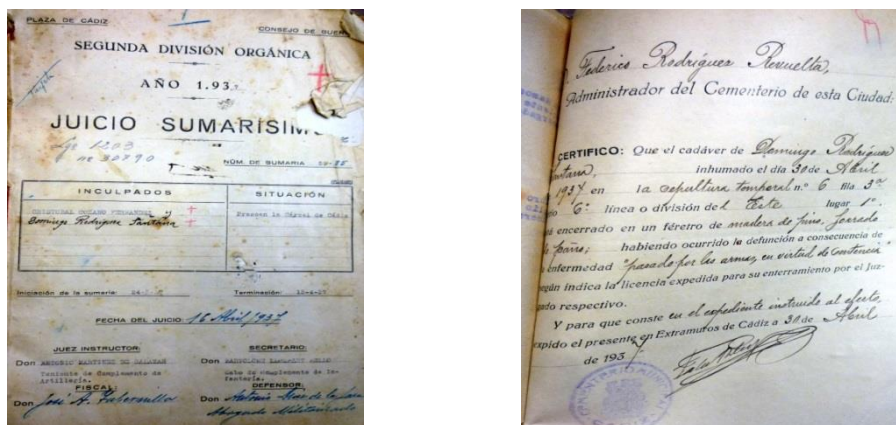 PLAZA DE CÁDIZ
CONSEJO DE GUERRA
SEGUNDA DIVISIÓN ORGÁNICA
AÑO 1.93
JUICIO SUMARÍSIMO
NÚM. DE SUMARIA
INCULPADOS
SITUACIÓN
CRISTOBAL FERNANDEZ y
Domingo Rodríguez Santana
Presos en la Cárcel de Cádiz
Iniciación de la sumaria:
Terminación:
FECHA DEL JUICIO: 16 Abril/1937
JUEZ INSTRUCTOR:
SECRETARIO:
Don ANTONIO MARTINEZ
Teniente de Complemento de
Artillería.
Don
Cabo de complemento de In-
fantería.
FISCAL:
DEFENSOR:
Don José A.
Don Antonio de la
Abogado Militarizado
Federico Rodríguez Revuelta,
Administrador del Cementerio de esta Ciudad:
CERTIFICO: Que el cadáver de Domingo Rodríguez
Santana, inhumado el día 30 de Abril
1937 en la sepultura temporal n.º 6 fila 3ª
6º línea o división del Este lugar 1º
encerrado en un féretro de madera de pino, forrado
de paño; habiendo ocurrido la defunción a consecuencia de
enfermedad "pasado por las armas en virtud de sentencia"
según indica la licencia expedida para su enterramiento por el Juz-
gado respectivo.
Y para que conste en el expediente instruido al efecto,
expido el presente en Extramuros de Cádiz a 30 de Abril
de 1937